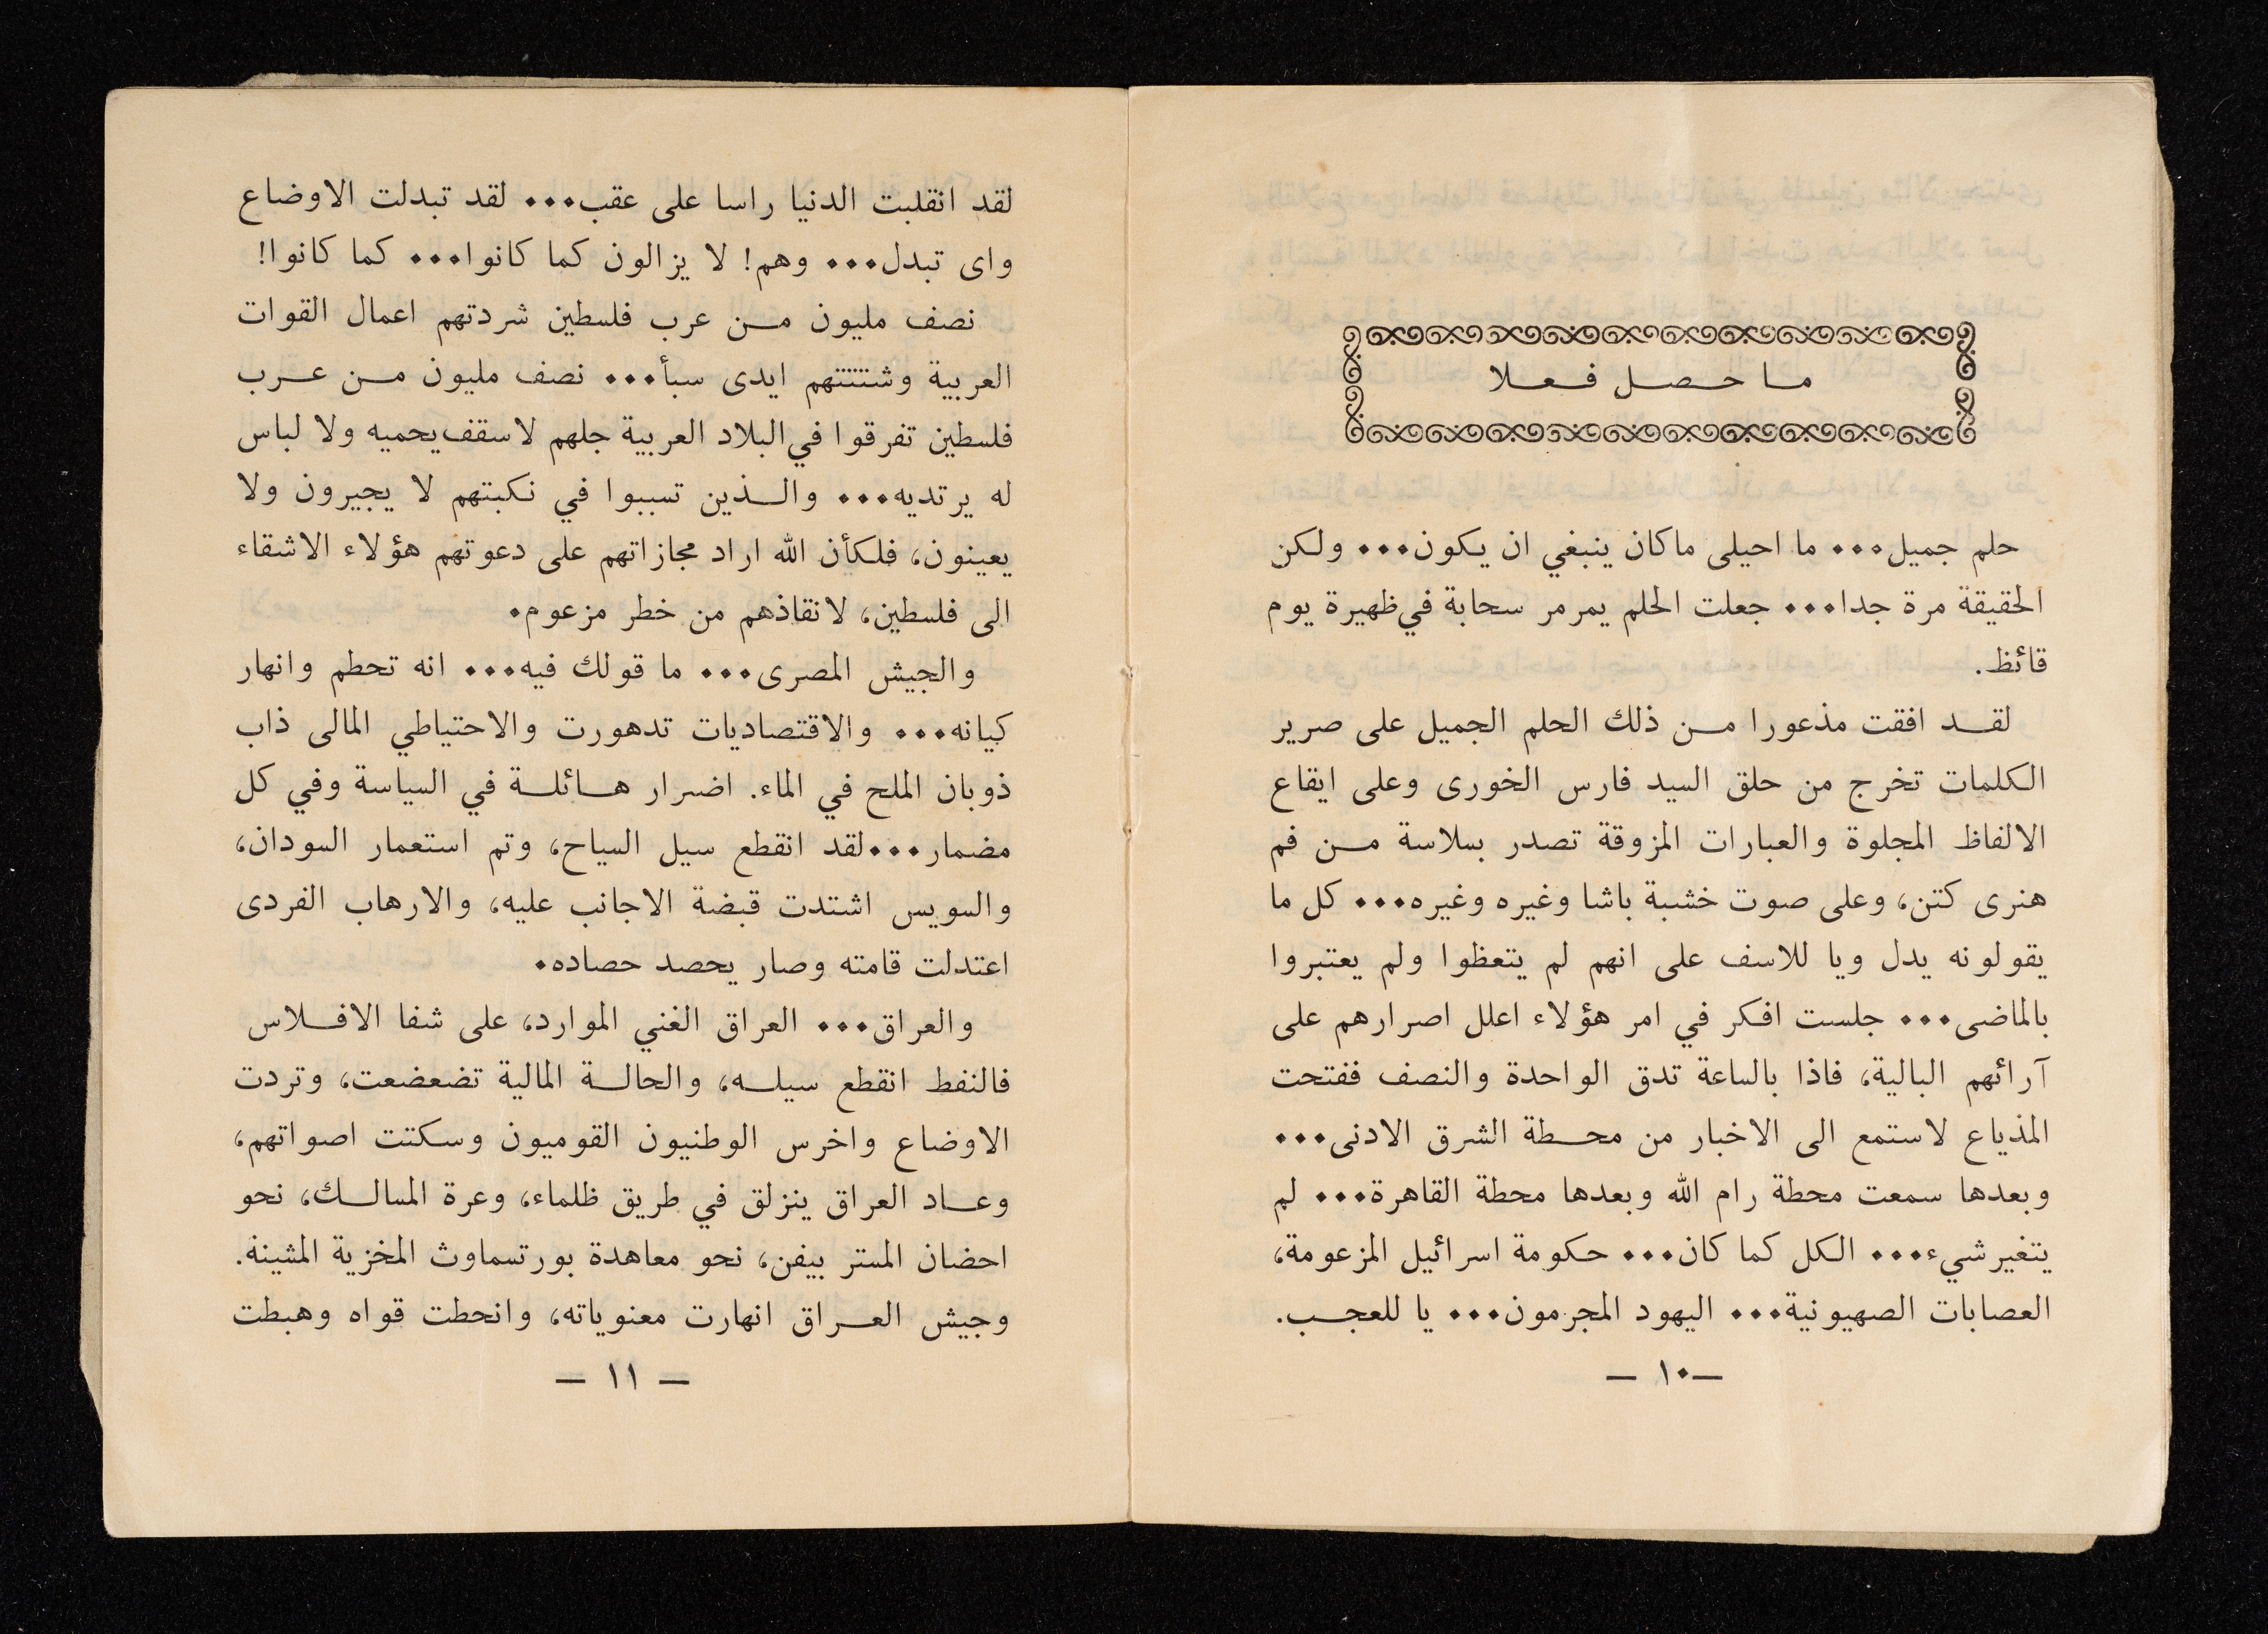 ما حصل فعلا
حلم جميل٠٠٠ ما احيلى ماكان ينبغي ان يكون٠٠٠ ولكن
الحقيقة مرة جدا٠٠٠ جعلت الحلم يمرمر سحابة في ظهيرة يوم
قائظ.
لقد افقت مذعورا من ذلك الحلم الجميل على صرير
الكلمات تخرج من حلق السيد فارس الخورى وعلى ايقاع
الالفاظ المجلوة والعبارات المزوقة تصدر بسلاسة من فم
هنرى كتن، وعلى صوت خشبة باشا وغيره وغيره٠٠٠ كل ما
يقولونه يدل ويا للاسف على انهم لم يتعظوا ولم يعتبروا
بالماضى٠٠٠ جلست افكر في امر هؤلاء اعلل اصرارهم على
آرائهم البالية، فاذا بالساعة تدق الواحدة والنصف ففتحت
المذياع لاستمع الى الاخبار من محطة الشرق الادنى٠٠٠
وبعدها سمعت محطة رام الله وبعدها محطة القاهرة٠٠٠ لم
يتغير شيء٠٠٠ الكل كما كان٠٠٠ حكومة اسرائيل المزعومة،
العصابات الصهيونية٠٠٠ اليهود المجرمون٠٠٠ يا للعجب.
— ١٠ —
لقد انقلبت الدنيا راسا على عقب٠٠٠ لقد تبدلت الاوضاع
واى تبدل٠٠٠ وهم! لا يزالون كما كانوا٠٠٠ كما كانوا!
نصف مليون من عرب فلسطين شردتهم اعمال القوات
العربية وشتتتهم ايدى سبأ٠٠٠ نصف مليون من عرب
فلسطين تفرقوا في البلاد العربية جلهم لاسقف يحميه ولا لباس
له يرتديه٠٠٠ والذين تسببوا في نكبتهم لا يجيرون ولا
يعينون، فلكأن الله اراد مجازاتهم على دعوتهم هؤلاء الاشقاء
الى فلسطين، لانقاذهم من خطر مزعوم٠
والجيش المصرى٠٠٠ ما قولك فيه٠٠٠ انه تحطم وانهار
كيانه٠٠٠ والاقتصاديات تدهورت والاحتياطي المالى ذاب
ذوبان الملح في الماء. اضرار هائلة في السياسة وفي كل
مضمار٠٠٠لقد انقطع سيل السياح، وتم استعمار السودان،
والسويس اشتدت قبضة الاجانب عليه، والارهاب الفردى
اعتدلت قامته وصار يحصد حصاده٠
والعراق٠٠٠ العراق الغني الموارد، على شفا الافلاس
فالنفط انقطع سيله، والحالة المالية تضعضعت، وتردت
الاوضاع واخرس الوطنيون القوميون وسكتت اصواتهم،
وعاد العراق ينزلق في طريق ظلماء، وعرة المسالك، نحو
احضان المستر بيفن، نحو معاهدة بورتسماوث المخزية المشينة.
وجيش العراق انهارت معنوياته، وانحطت قواه وهبطت
— ١١ —